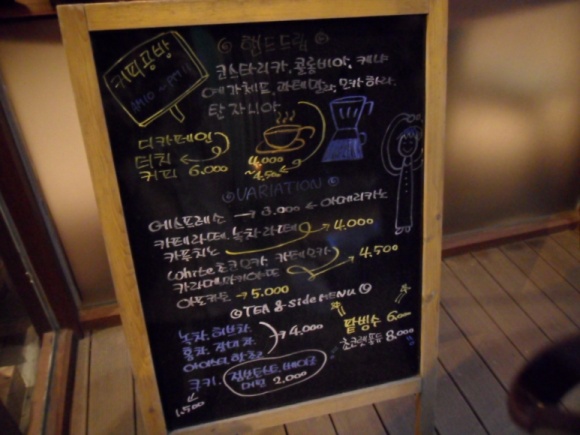 커피공방
핸드드립
코스타리카, 콜롬비아, 케냐
예가체프, 과테말라, 모카하라,
탄자니아
디카페인
더치
커피 6,000
4,000
~4,500
VARIATION
에스프레소 → 3,000 ← 아메리카노
카페라떼, 녹차라떼 → 4,000
카푸치노
White, 초코모카, 카페모카 → 4,500
카라메마끼아또
아포카토 → 5,000
TEA & side MENU
녹차, 허브차
홍차, → 4,000
팥빙수 6,000
초코렛퐁듀 8,000
쿠키,
머핀 2,000
1,500